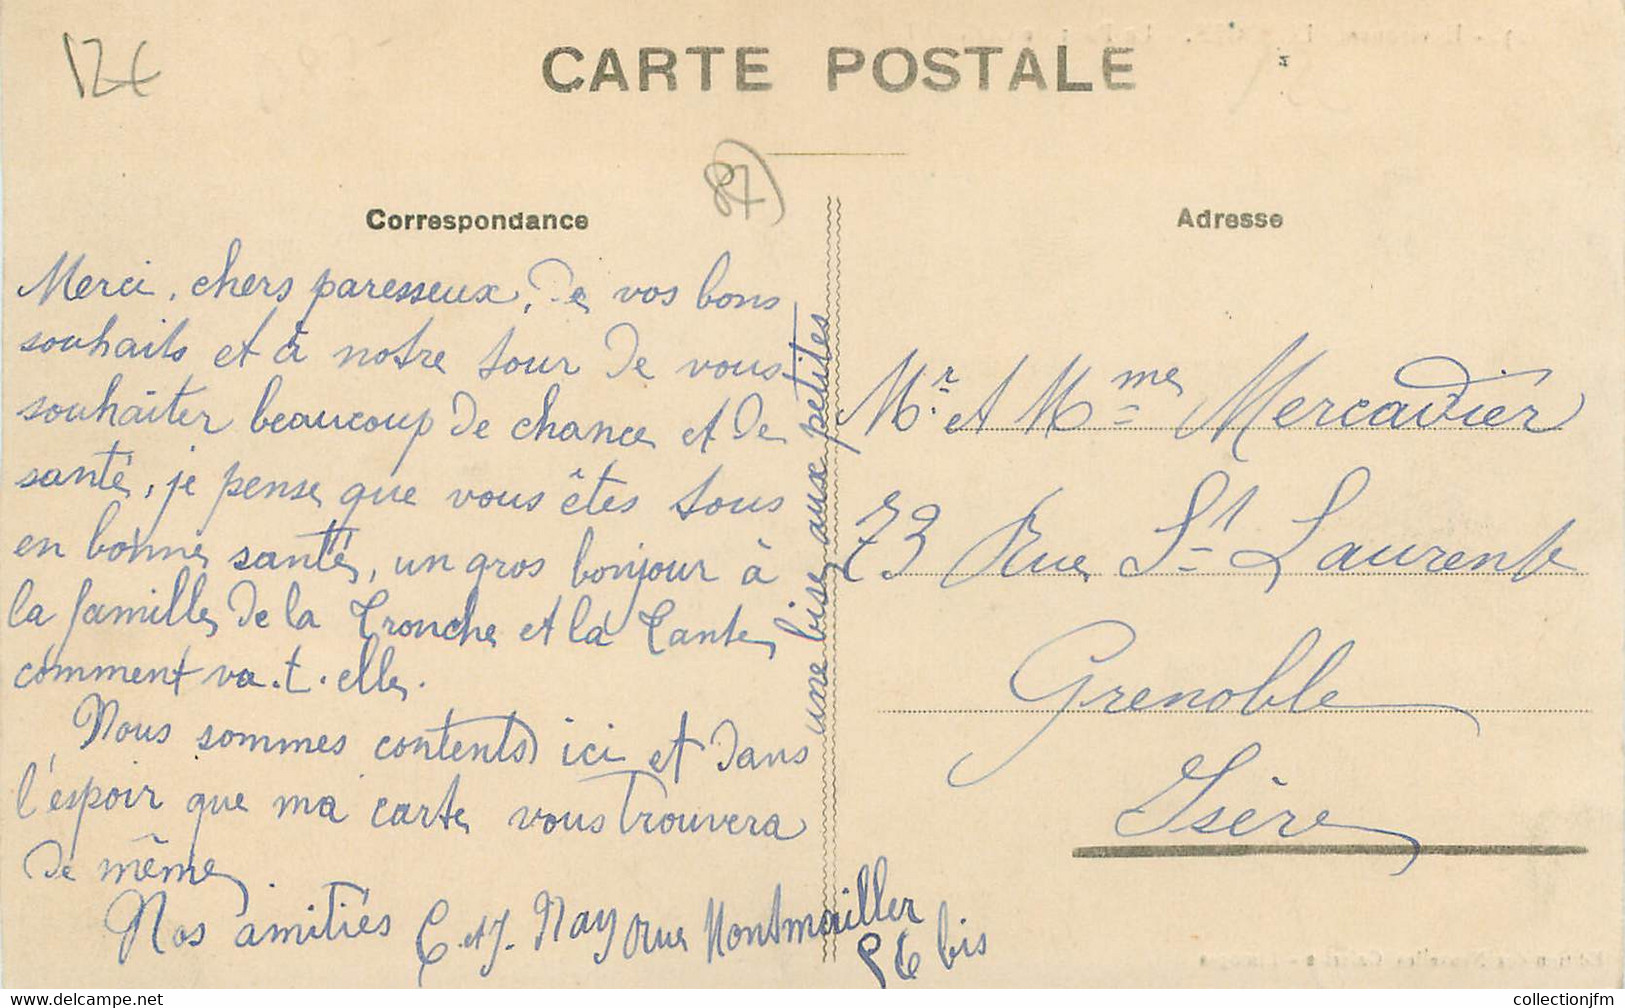 12€
CARTE POSTALE
87
Correspondance
Adresse
Merci, chers paresseux, de vos bons
souhaits et à notre tour de vous
souhaiter beaucoup de chance et de
santé, je pense que vous êtes tous
en bonne santé, un gros bonjour à
la famille de la Tronche et la Tante
comment va.t.elle.
Nous sommes contents ici et dans
l'espoir que ma carte vous trouvera
de même.
Nos amitiés C. et J. Nay rue Montmailler
56 bis
une bise aux petites
Mr. et Mme Mercadier
73 Rue St Laurent
Grenoble
Isère
collectionjfm